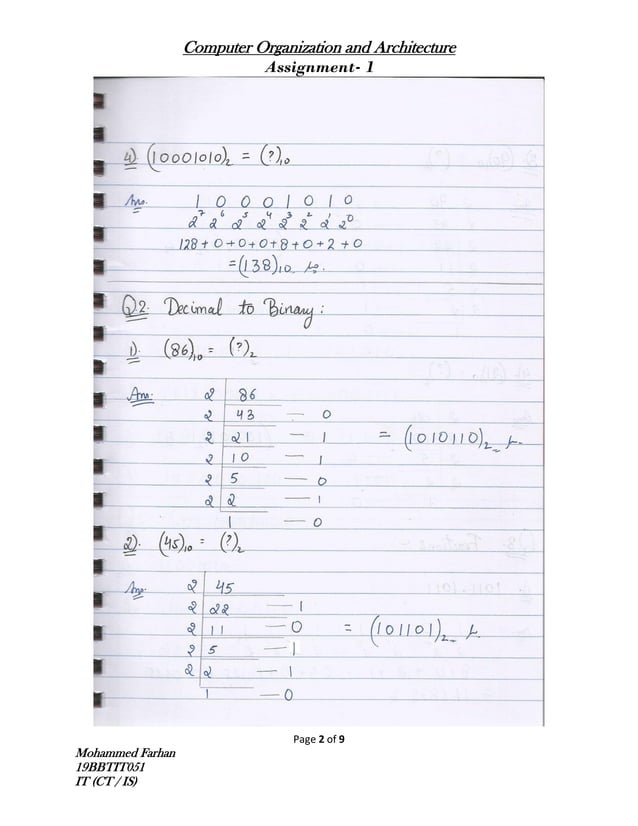 Computer Organization and Architecture
Assignment- 1
4) (10001010)₂ = (?)₁₀
Ans. 1 0 0 0 1 0 1 0
2⁷ 2⁶ 2⁵ 2⁴ 2³ 2² 2¹ 2⁰
128 + 0 + 0 + 0 + 8 + 0 + 2 + 0
= (138)₁₀
Q2. Decimal to Binary :
1). (86)₁₀ = (?)₂
Ans. 2 86
2 43 — 0
2 21 — 1 = (1010110)₂
2 10 — 1
2 5 — 0
2 2 — 1
1 — 0
2). (45)₁₀ = (?)₂
Ans. 2 45
2 22 — 1
2 11 — 0 = (101101)₂
2 5 — 1
2 2 — 1
1 — 0
Page 2 of 9
Mohammed Farhan
19BBTIT051
IT (CT / IS)